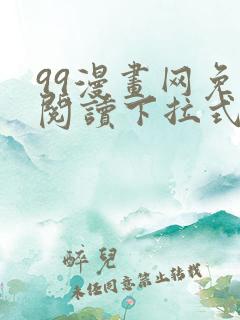 99漫畫网免
閱讀下拉式
醉兒
未经同意禁止转载